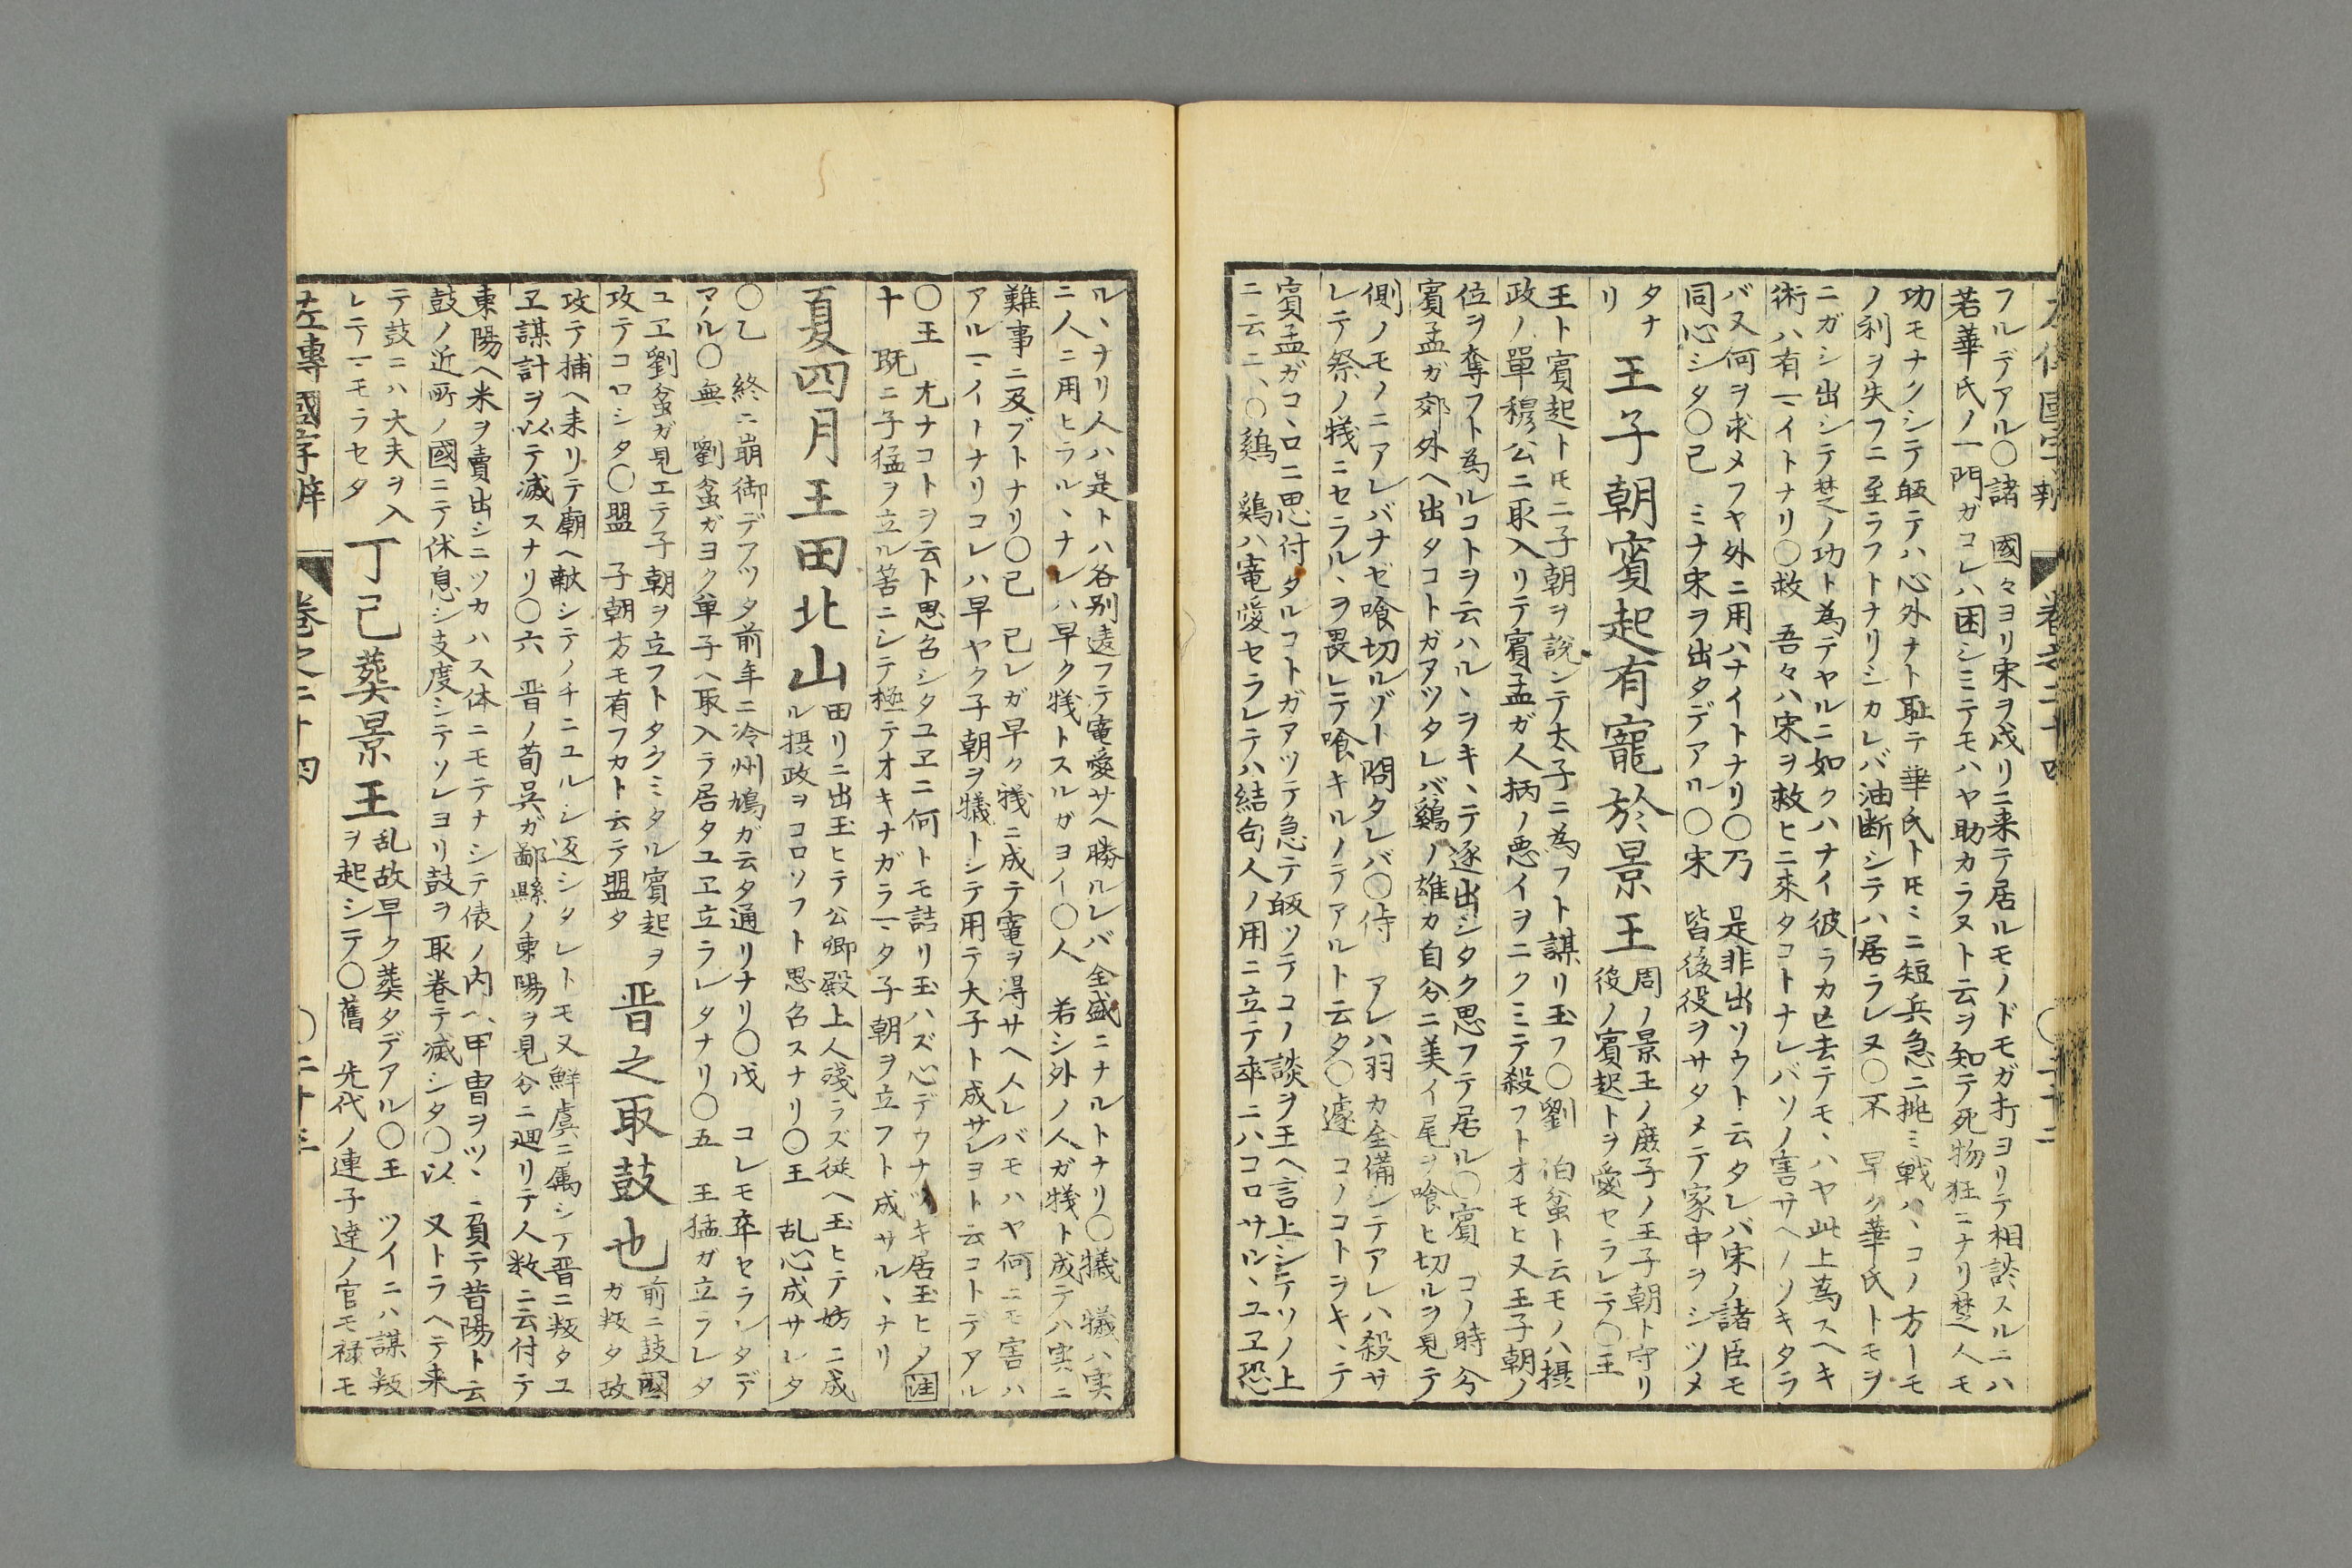 フルデアル〇諸　國々ヨリ宋ヲ戍リニ来テ居ルモノドモガ打ヨリテ相談スルニハ
若華氏ノ一門ガコレハ困シミテモハヤ助カラヌト云ヲ知テ死物狂ニナリ楚人モ
功モナクシテ皈テハ心外ナト耻テ華氏トㇳモミニ短兵急ニ挑ミ戦ハヽコノ方ーモ
ノ利ヲ失フニ至ラフトナリシカレバ油断シテハ居ラレヌ〇不　早ク華氏トモヲ
ニガシ出シテ楚ノ功ト為テヤルニ如クハナイ彼ラカ亡去テモハヤ此上為スヘキ
術ハ有ーイトナリ〇救　吾々ハ宋ヲ救ヒニ来タコトナレバソノ害サヘノソキタラ
バ又何ヲ求メフヤ外ニ用ハナイトナリ〇乃　是非出ソウト云タレバ宋ノ諸臣モ
同心シタ〇己　ミナ宋ヲ出タデアル〇宋　皆後役ヲサタメテ家中ヲシツメ
タナリ
王子朝賓起有寵於景王
周ノ景王ノ庶子ノ王子朝ト守リ
役ノ賓起トヲ愛セラレテ〇王
王ト賓起トㇳモニ子朝ヲ説シテ太子ニ為フト謀リ玉フ〇劉　伯蚠ト云モノハ摂
政ノ單穆公ニ取入リテ賓孟ガ人柄ノ悪イヲニクミテ殺フトオモヒ又王子朝ノ
位ヲ奪フト為ルコトヲ云ハルヽヲキヽテ逐出シタク思フテ居ル〇賓　コノ時分
賓孟ガ郊外ヘ出タコトガアツタレバ鷄ノ雄カ自分ニ美イ尾ヲ喰ヒ切ルヲ見テ
側ノモノニアレバナゼ喰切ルゾト問タレバ〇侍　アレハ羽カ全備シテアレハ殺サ
レテ祭ノ犠ニセラルヽヲ畏レテ喰キルノテアルト云タ〇遽　コノコトヲキヽテ
賓孟ガコヽロニ思付タルコトガアツテ急テ皈ツテコノ談ヲ王ヘ言上シテソノ上
ニ云ニ、〇鷄　鷄ハ寵愛セラレテハ結句人ノ用ニ立テ卒ニハコロサルヽユヱ恐
ルヽナリ人ハ是トハ各別違フテ寵愛サヘ勝ルレバ全盛ニナルトナリ〇犠　犠ハ実
ニ人ニ用ヒラルヽナレハ早ク犠トスルガヨイ〇人　若シ外ノ人ガ犠ト成テハ実ニ
難事ニ及ブトナリ〇己　己レガ早ク犠ニ成テ寵ヲ得サヘ人レバモハヤ何ニモ害ハ
アルーイトナリコレハ早ヤク子朝ヲ犠トシテ用テ大子ト成サレヨト云コトデアル
〇王　尤ナコトヲ云ト思召シタユヱニ何トモ詰リ玉ハズ心デウナヅキ居玉ヒ〆注
十　既ニ子猛ヲ立ル筈ニシテ極テオキナガラータ子朝ヲ立フト成サルヽナリ
夏四月王田北山
田リニ出玉ヒテ公卿殿上人殘ラズ従ヘ玉ヒテ妨ニ成
ル摂政ヲコロソフト思召スナリ〇王　乱心成サレタ
〇乙　終ニ崩御デアツタ前年ニ冷州鳩ガ云タ通リナリ〇戊　コレモ卒セラレタデ
マル〇無　劉蚠ガヨク単子ヘ取入ラ居タユヱ立ラレタナリ〇五　王猛ガ立ラレタ
ユヱ劉蚠ガ見エテ子朝ヲ立フトタクミタル賓起ヲ
攻テコロシタ〇盟　子朝方モ有フカト云テ盟タ
晋之取鼓也
前ニ鼓國
ガ叛タ故
攻テ捕ヘ来リテ廟ヘ献シテノチニユルシ返シタレトモ又鮮虞ニ属シテ晋ニ叛タユ
ヱ謀計ヲ以テ滅スナリ〇六　晋ノ荀呉ガ鄙縣ノ東陽ヲ見分ニ廻リテ人数ニ云付テ
東陽ヘ米ヲ賣出シニツカハス体ニモテナシテ俵ノ内ヘ甲冑ヲツヽミ負テ昔陽ト云
鼓ノ近所ノ國ニテ休息シ支度シテソレヨリ鼓ヲ取巻テ滅シタ〇以　又トラヘテ来
テ鼓ニハ大夫ヲ入
レテーモラセタ
丁己葬景王
乱故早ク葬タデアル〇王　ツイニハ謀叛
ヲ起シテ〇舊　先代ノ連子達ノ官モ禄モ
左傳國字辨　卷之二十四　〇二十三